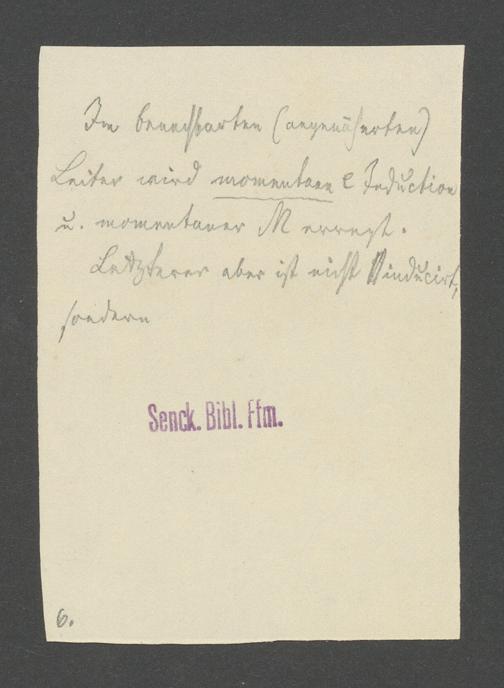 Im benachbarten (angenäherten)
Leiter wird momentane e Induction
u. momentaner M erregt.
Letzterer aber ist nicht inducirt,
sondern
Senck. Bibl. Ffm.
6.